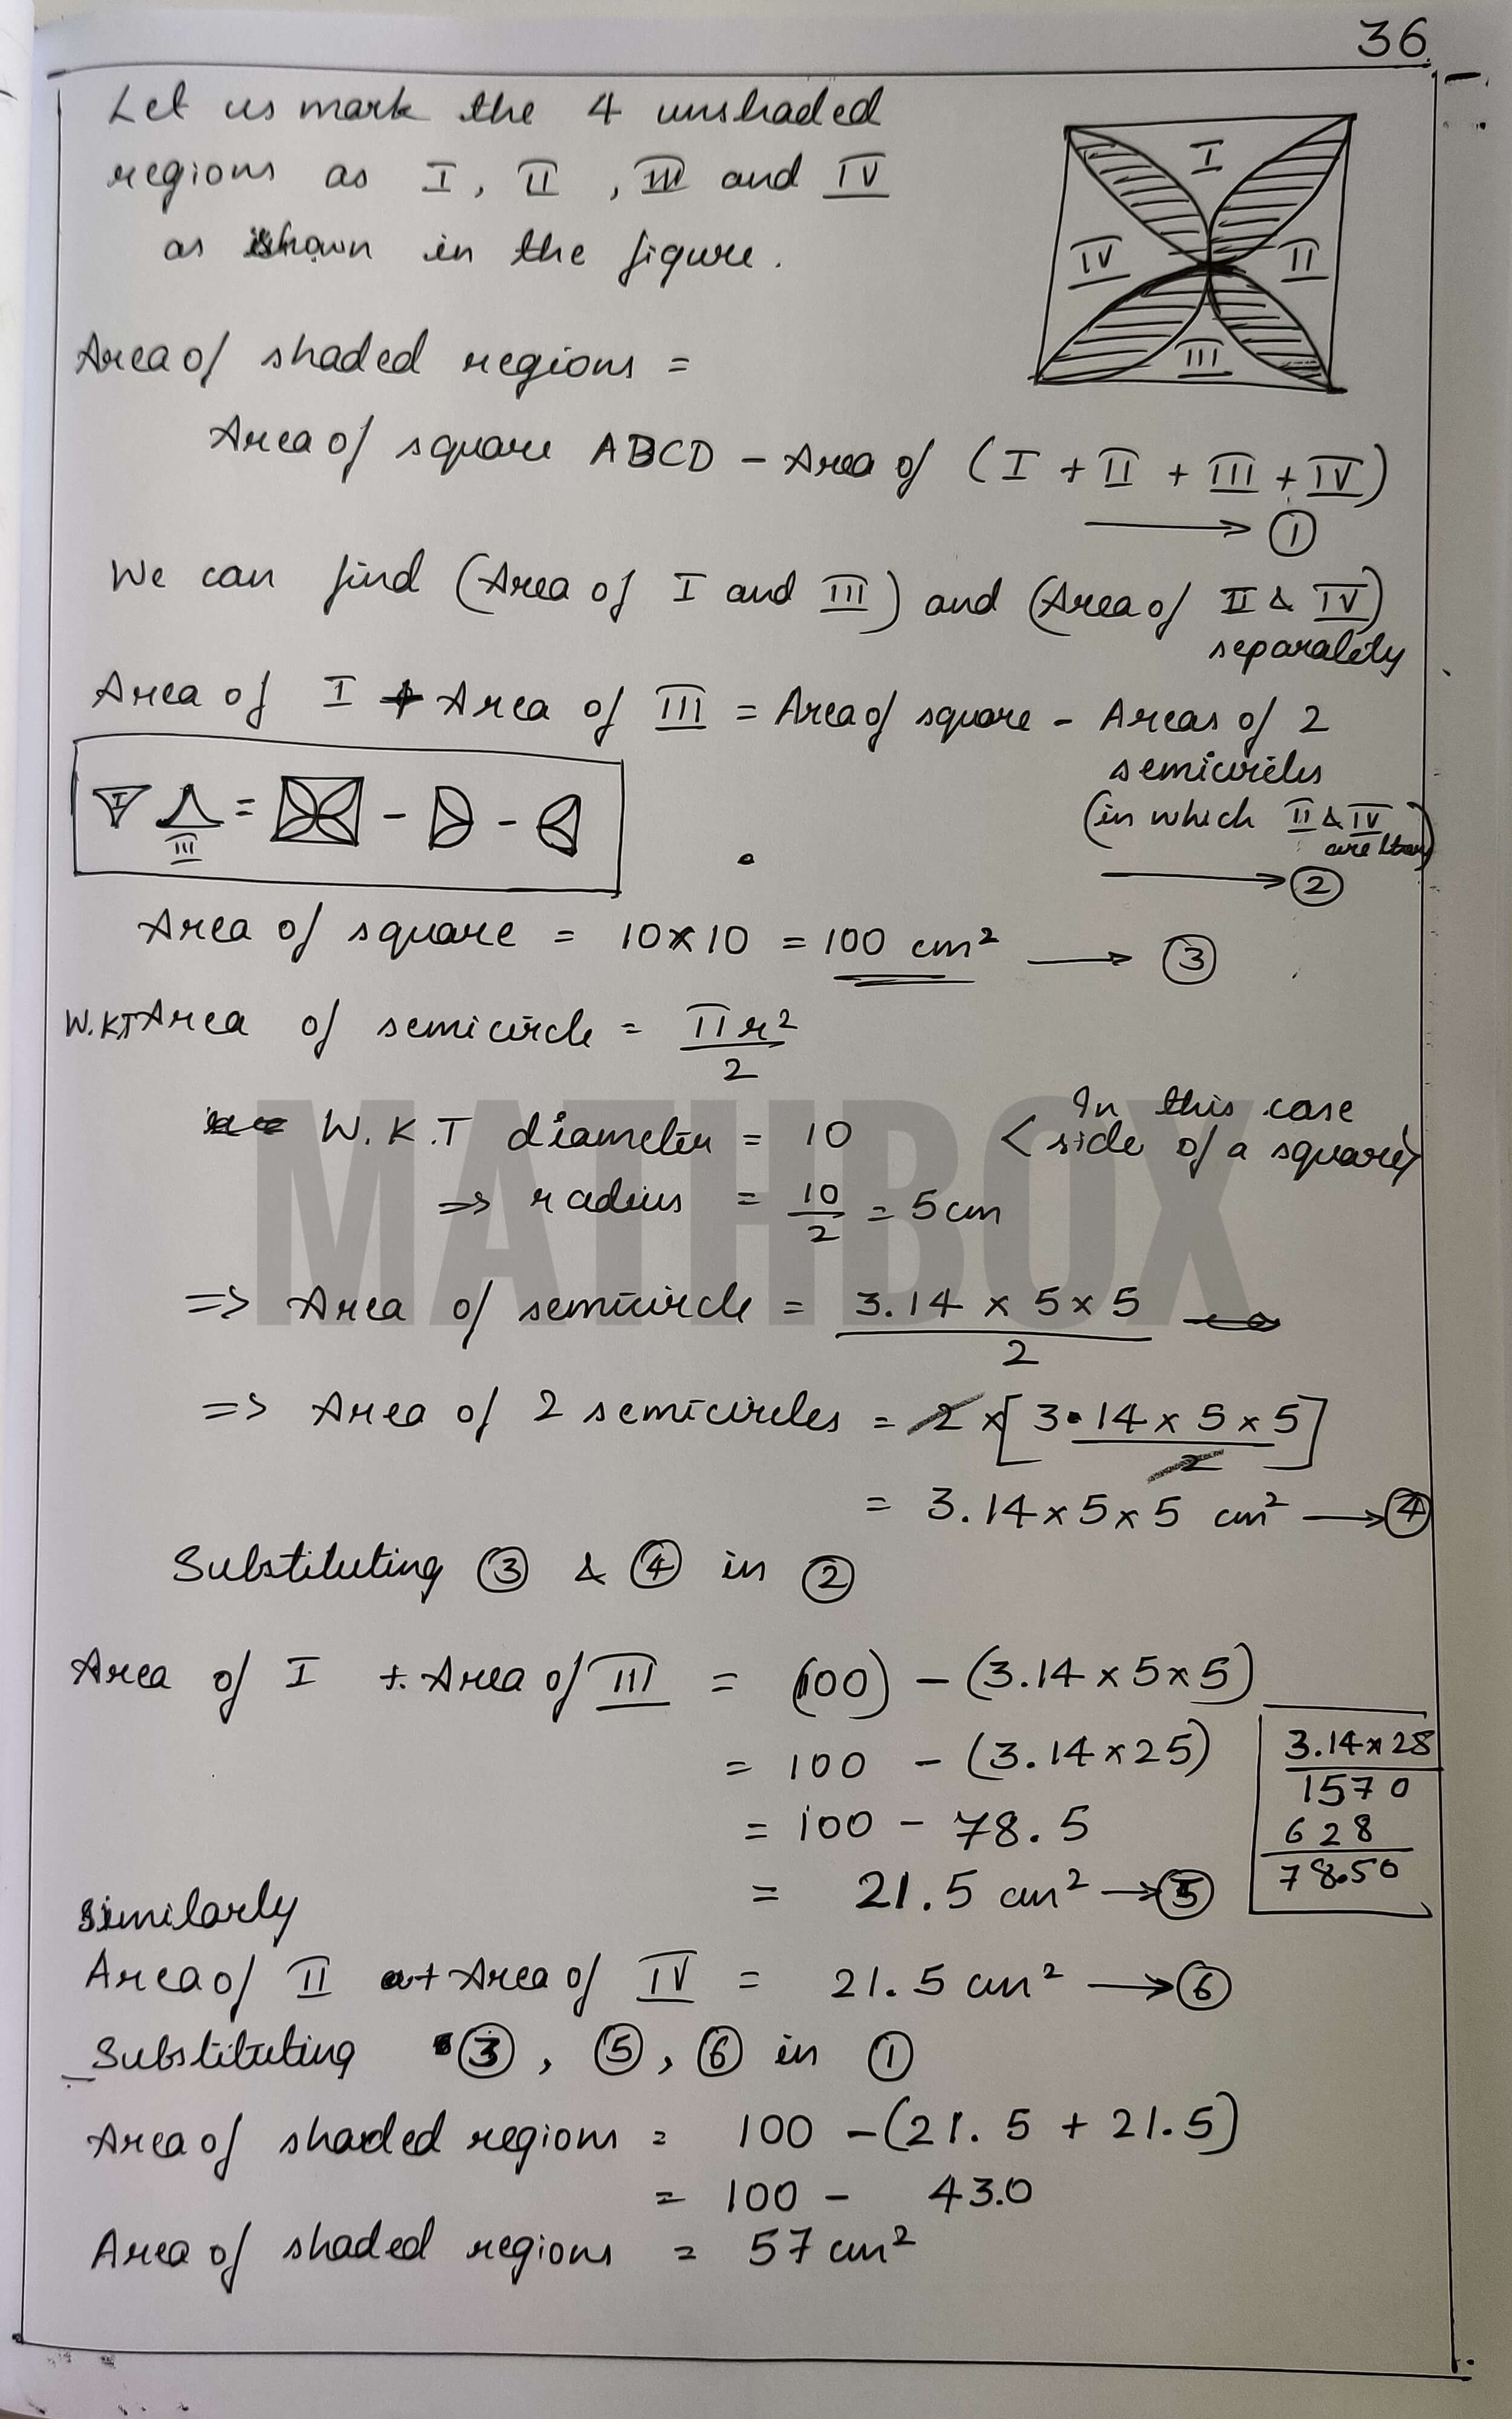 36
Let us mark the 4 unshaded
regions as I, II, III and IV
as shown in the figure.
I
IV
II
III
Area of shaded regions =
Area of square ABCD - Area of (I + II + III + IV)
→ ①
We can find (Area of I and III) and (Area of II & IV)
separately
Area of I + Area of III = Area of square - Areas of 2
semicircles
(in which II & IV
are
→ ②
I = - -
III
Area of square = 10 × 10 = 100 cm² → ③
W.K.T Area of semicircle = πr²
2
W.K.T diameter = 10 < In this case
side of a square >
⇒ radius = 10/2 = 5 cm
MATHBOX
⇒ Area of semicircle = 3.14 × 5 × 5
2
⇒ Area of 2 semicircles = 2 × [3.14 × 5 × 5]
2
= 3.14 × 5 × 5 cm² → ④
Substituting ③ & ④ in ②
Area of I + Area of III = (100) - (3.14 × 5 × 5)
= 100 - (3.14 × 25)
3.14 × 25
1570
628
78.50
= 100 - 78.5
= 21.5 cm² → ⑤
Similarly
Area of II + Area of IV = 21.5 cm² → ⑥
Substituting ③, ⑤, ⑥ in ①
Area of shaded regions = 100 - (21.5 + 21.5)
= 100 - 43.0
Area of shaded regions = 57 cm²